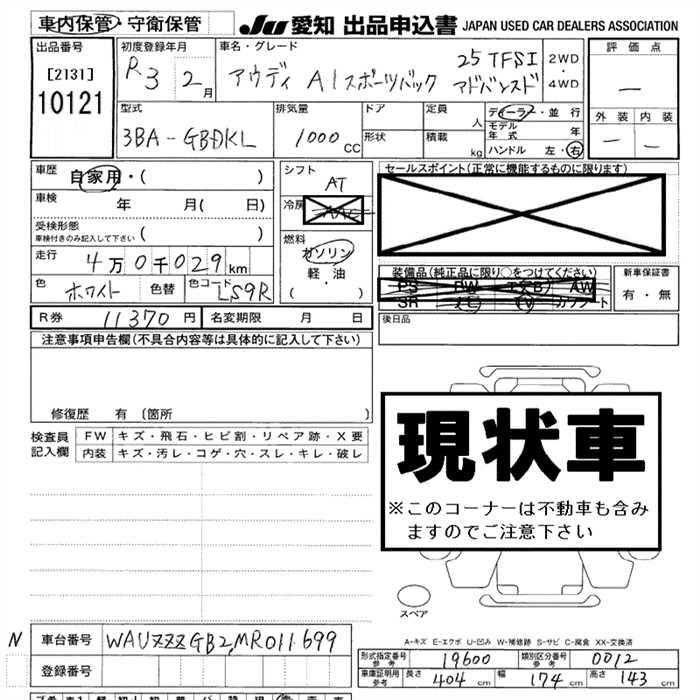 車内保管・守衛保管
JU 愛知 出品申込書 JAPAN USED CAR DEALERS ASSOCIATION
出品番号
[2131]
10121
初度登録年月
R3 2月
車名・グレード
アウディ A1スポーツバック 25 TFSI アドバンスド
2WD・4WD
評価点
―
外装 内装
― ―
型式
3BA-GBDKL
排気量
1000 CC
ドア
形状
定員 人
積載 kg
ディーラー・並行
モデル年式 年
ハンドル 左・右
車歴
自家用・( )
車検 年 月( 日)
受検形態
車検付きのみ記入して下さい ( )
走行
4万0千029km
色 ホワイト 色替 色コード LS9R
シフト
AT
冷房
燃料
ガソリン
軽・油
( ・ )
セールスポイント(正常に機能するものに限ります)
装備品(純正品に限り○をつけてください)
PS PW AW
SR TV カワシート
新車保証書
有・無
後日品
R券 11370円 名変期限 月 日
注意事項申告欄(不具合内容等は具体的に記入して下さい)
修復歴 有 [箇所 ]
検査員記入欄
FW キズ・飛石・ヒビ割・リペア跡・X要
内装 キズ・汚レ・コゲ・穴・スレ・キレ・破レ
現状車
※このコーナーは不動車も含み
ますのでご注意下さい
スペア
A-キズ E-エクボ U-凹み W-補修跡 S-サビ C-腐食 XX-交換済
N 車台番号 WAUZZZGB2MR011699
登録番号
形式指定番号 参考 19600 類別区分番号 参考 0012
車庫証明用 参考 長さ 404 cm 幅 174 cm 高さ 143 cm